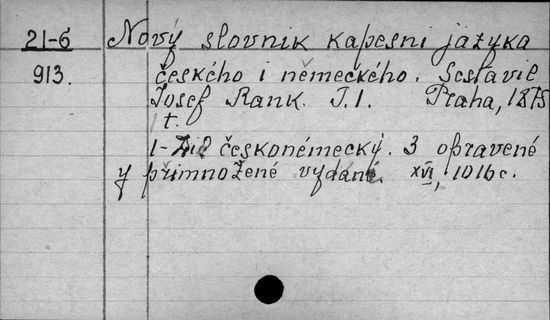 21-6 Nový slovnik kapesni jazyka
913. českého i německého. Sestavil
Josef Rank. T.1. Praha, 1875
t.
1-Dil českoněmecký. 3 opravené
y přimnožené vydáni. XVI, 1016 c.